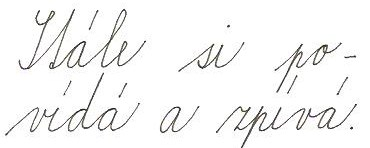 Stále si po-
vídá a zpívá.